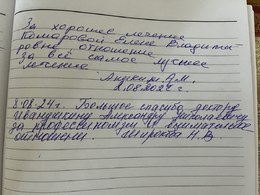 За хорошее лечение
Комаровой Елене Владими-
ровне отношение
За всё самое лучшее
лечение
А.М.
2.08.2024 г.
8.08.24г. Большое спасибо доктору
Иванушкину Александру Николаевичу
за профессионализм и внимательное
отношение. Миронова Н.В.